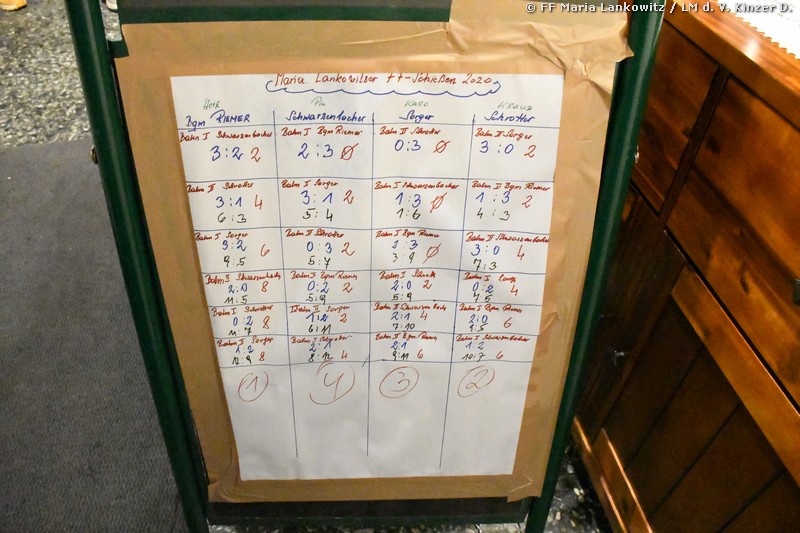 © FF Maria Lankowitz / LM d. V. Kinzer D.
Maria Lankowitzer ++-Schießen 2020
Herz Pik Karo Kreuz
Bgm RIEMER Schwarzenbacher Sorger Schrotter
Bahn I Schwarzenbacher Bahn I Bgm Riemer Bahn II Schrotter Bahn II Sorger
3:2 2 2:3 0 0:3 0 3:0 2
Bahn II Schrotter Bahn I Sorger Bahn I Schwarzenbacher Bahn II Bgm Riemer
3:1 4 3:1 2 1:3 0 1:3 2
6:3 5:4 1:6 4:3
Bahn I Sorger Bahn II Schrotter Bahn I Bgm Riemer Bahn II Schwarzenbacher
6 0:3 2 0 3:0 4
9:5 5:7 7:3
Bahn II Bahn II Bgm Riemer Bahn I Bahn I
2:0 8 0:2 2 2:0 2 0:2 4
11:5 5:9 5:9 7:5
Bahn I Schrotter Bahn II Sorger Bahn II Bahn I Bgm
0:2 8 1:2 2 2:1 4 2:0 6
11:7 6:11 7:10 9:5
Bahn I Sorger Bahn I Bahn II Bgm Bahn I Schwarzenbacher
1:2 2:1 2:1 1:2
12:9 8 8:12 4 9:11 6 10:7 6
1 4 3 2